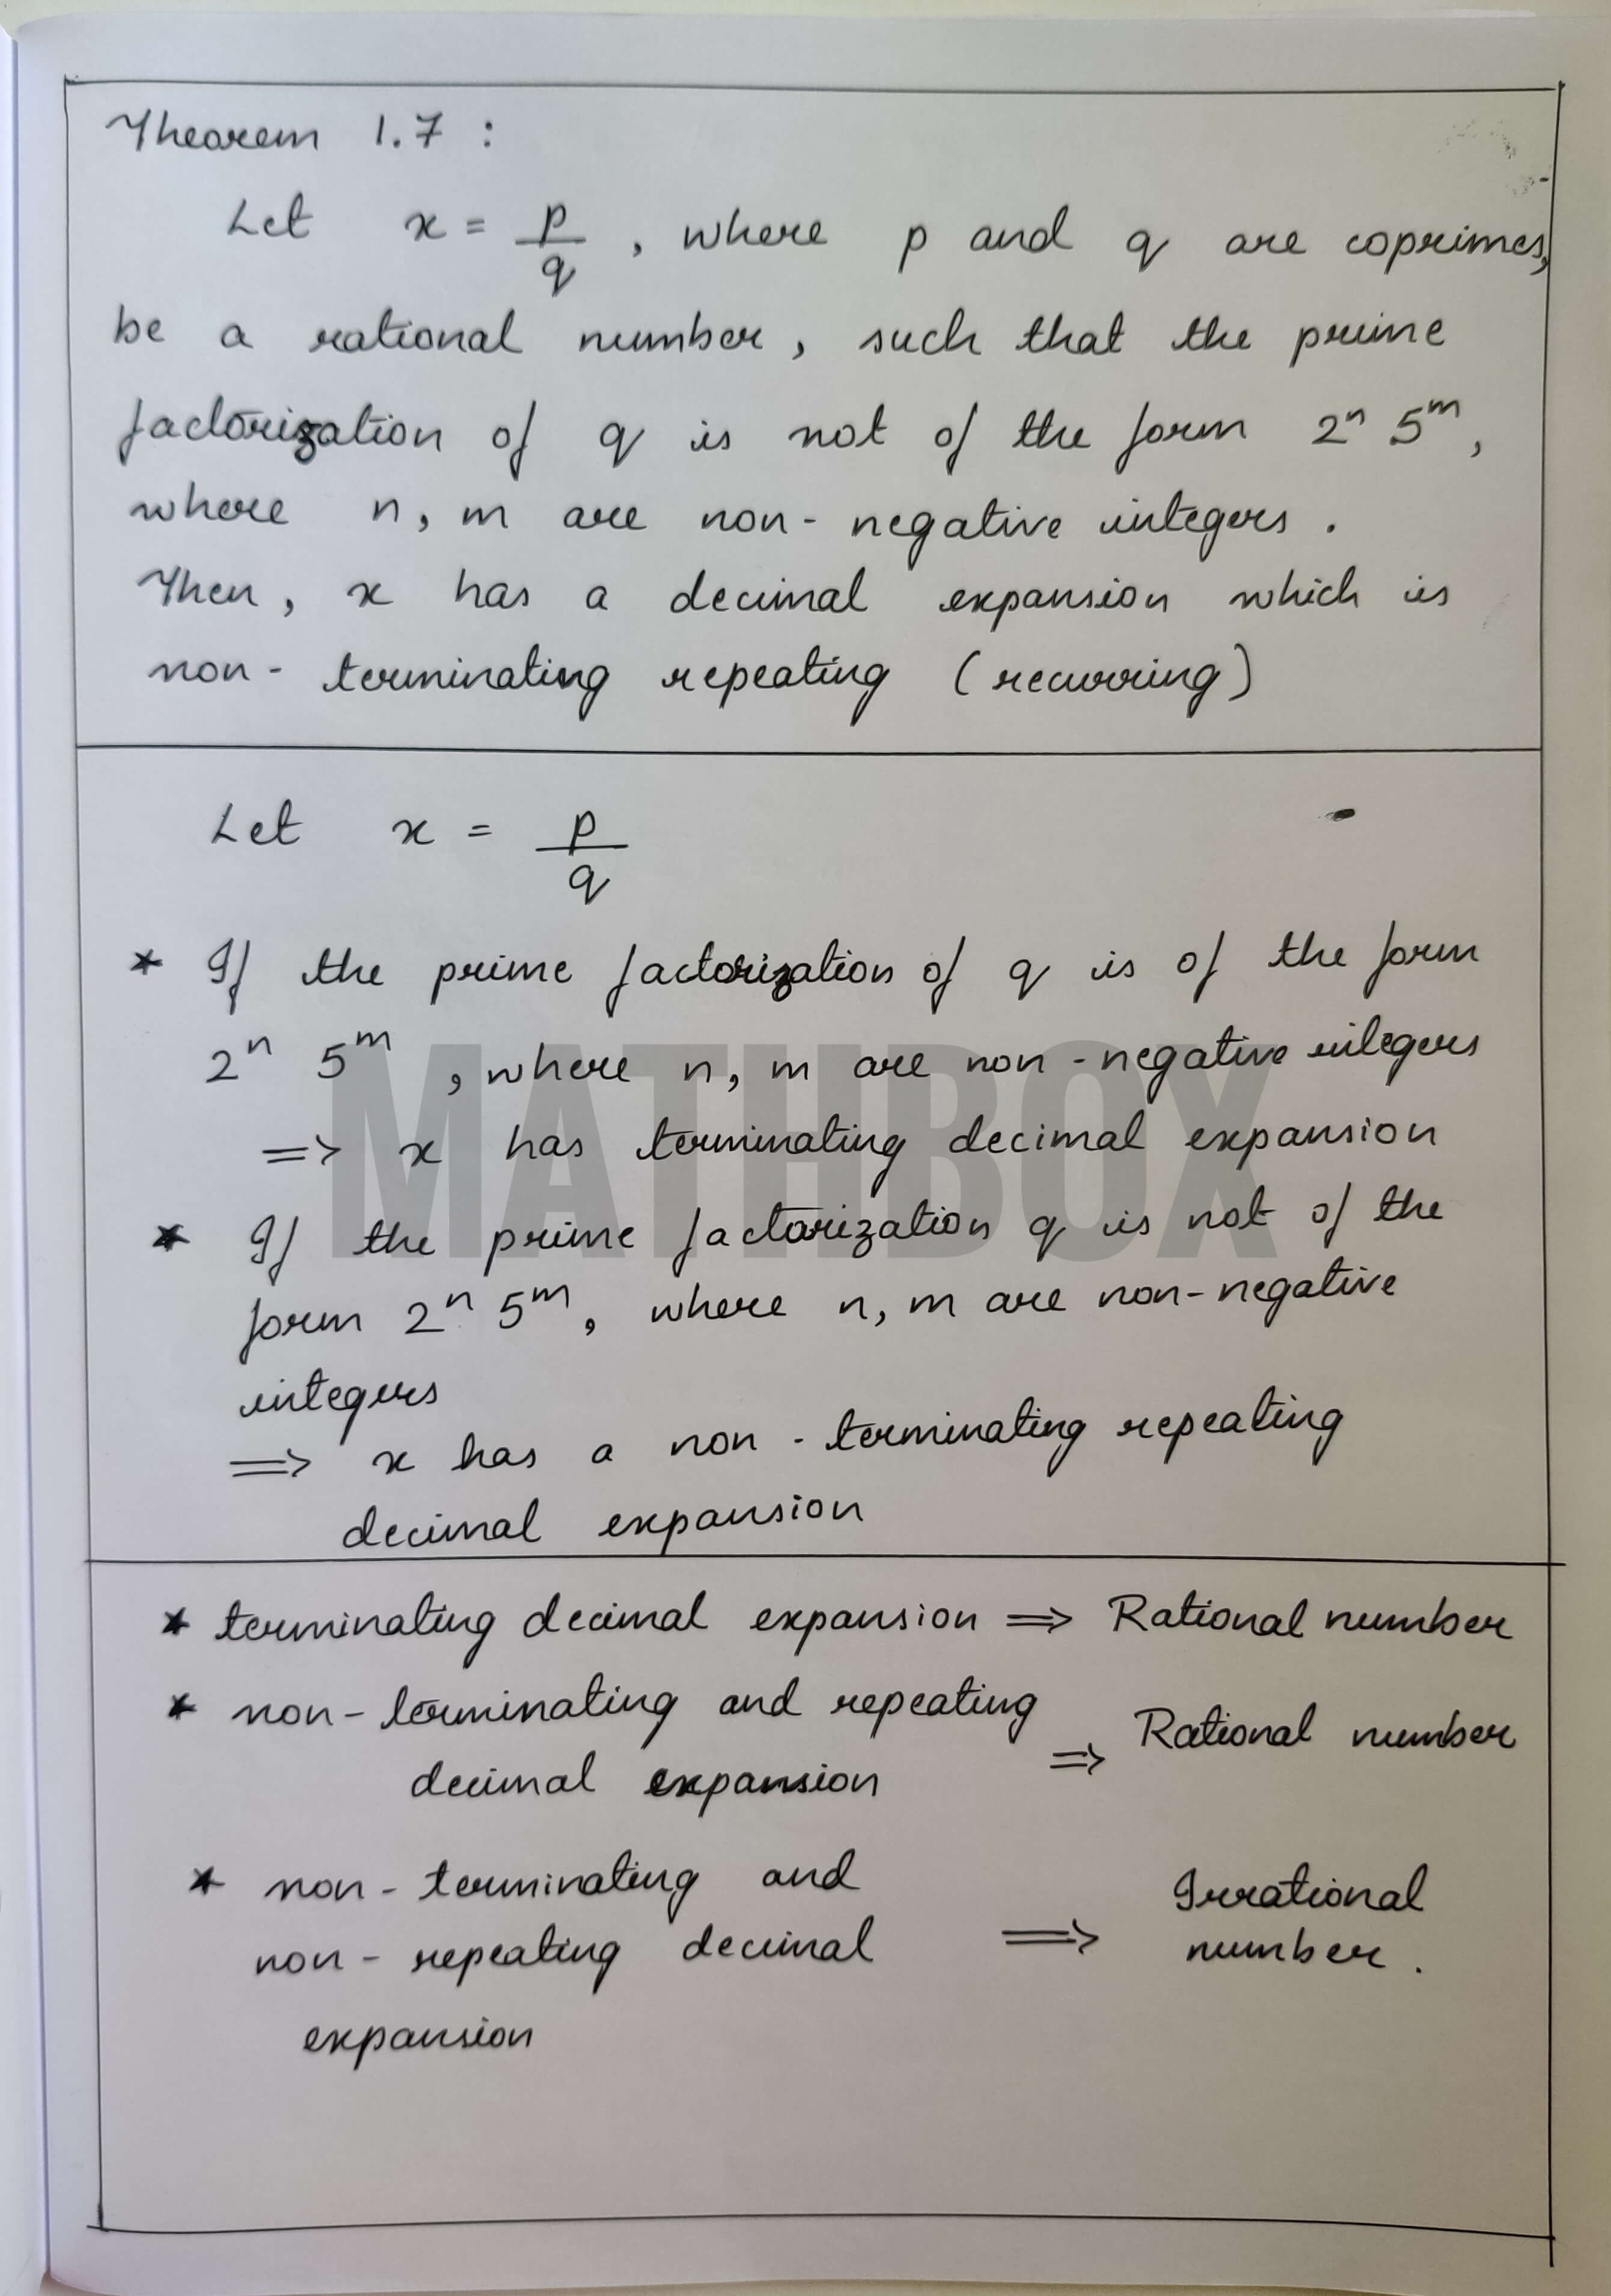 Theorem 1.7 :
Let x = p/q , where p and q are coprimes,
be a rational number, such that the prime
factorization of q is not of the form 2ⁿ 5ᵐ,
where n, m are non-negative integers.
Then, x has a decimal expansion which is
non-terminating repeating (recurring)
Let x = p/q
* If the prime factorization of q is of the form
2ⁿ 5ᵐ, where n, m are non-negative integers
=> x has terminating decimal expansion
* If the prime factorization q is not of the
form 2ⁿ 5ᵐ, where n, m are non-negative
integers
=> x has a non-terminating repeating
decimal expansion
MATHBOX
* terminating decimal expansion => Rational number
* non-terminating and repeating
decimal expansion => Rational number
* non-terminating and
non-repeating decimal => Irrational number.
expansion